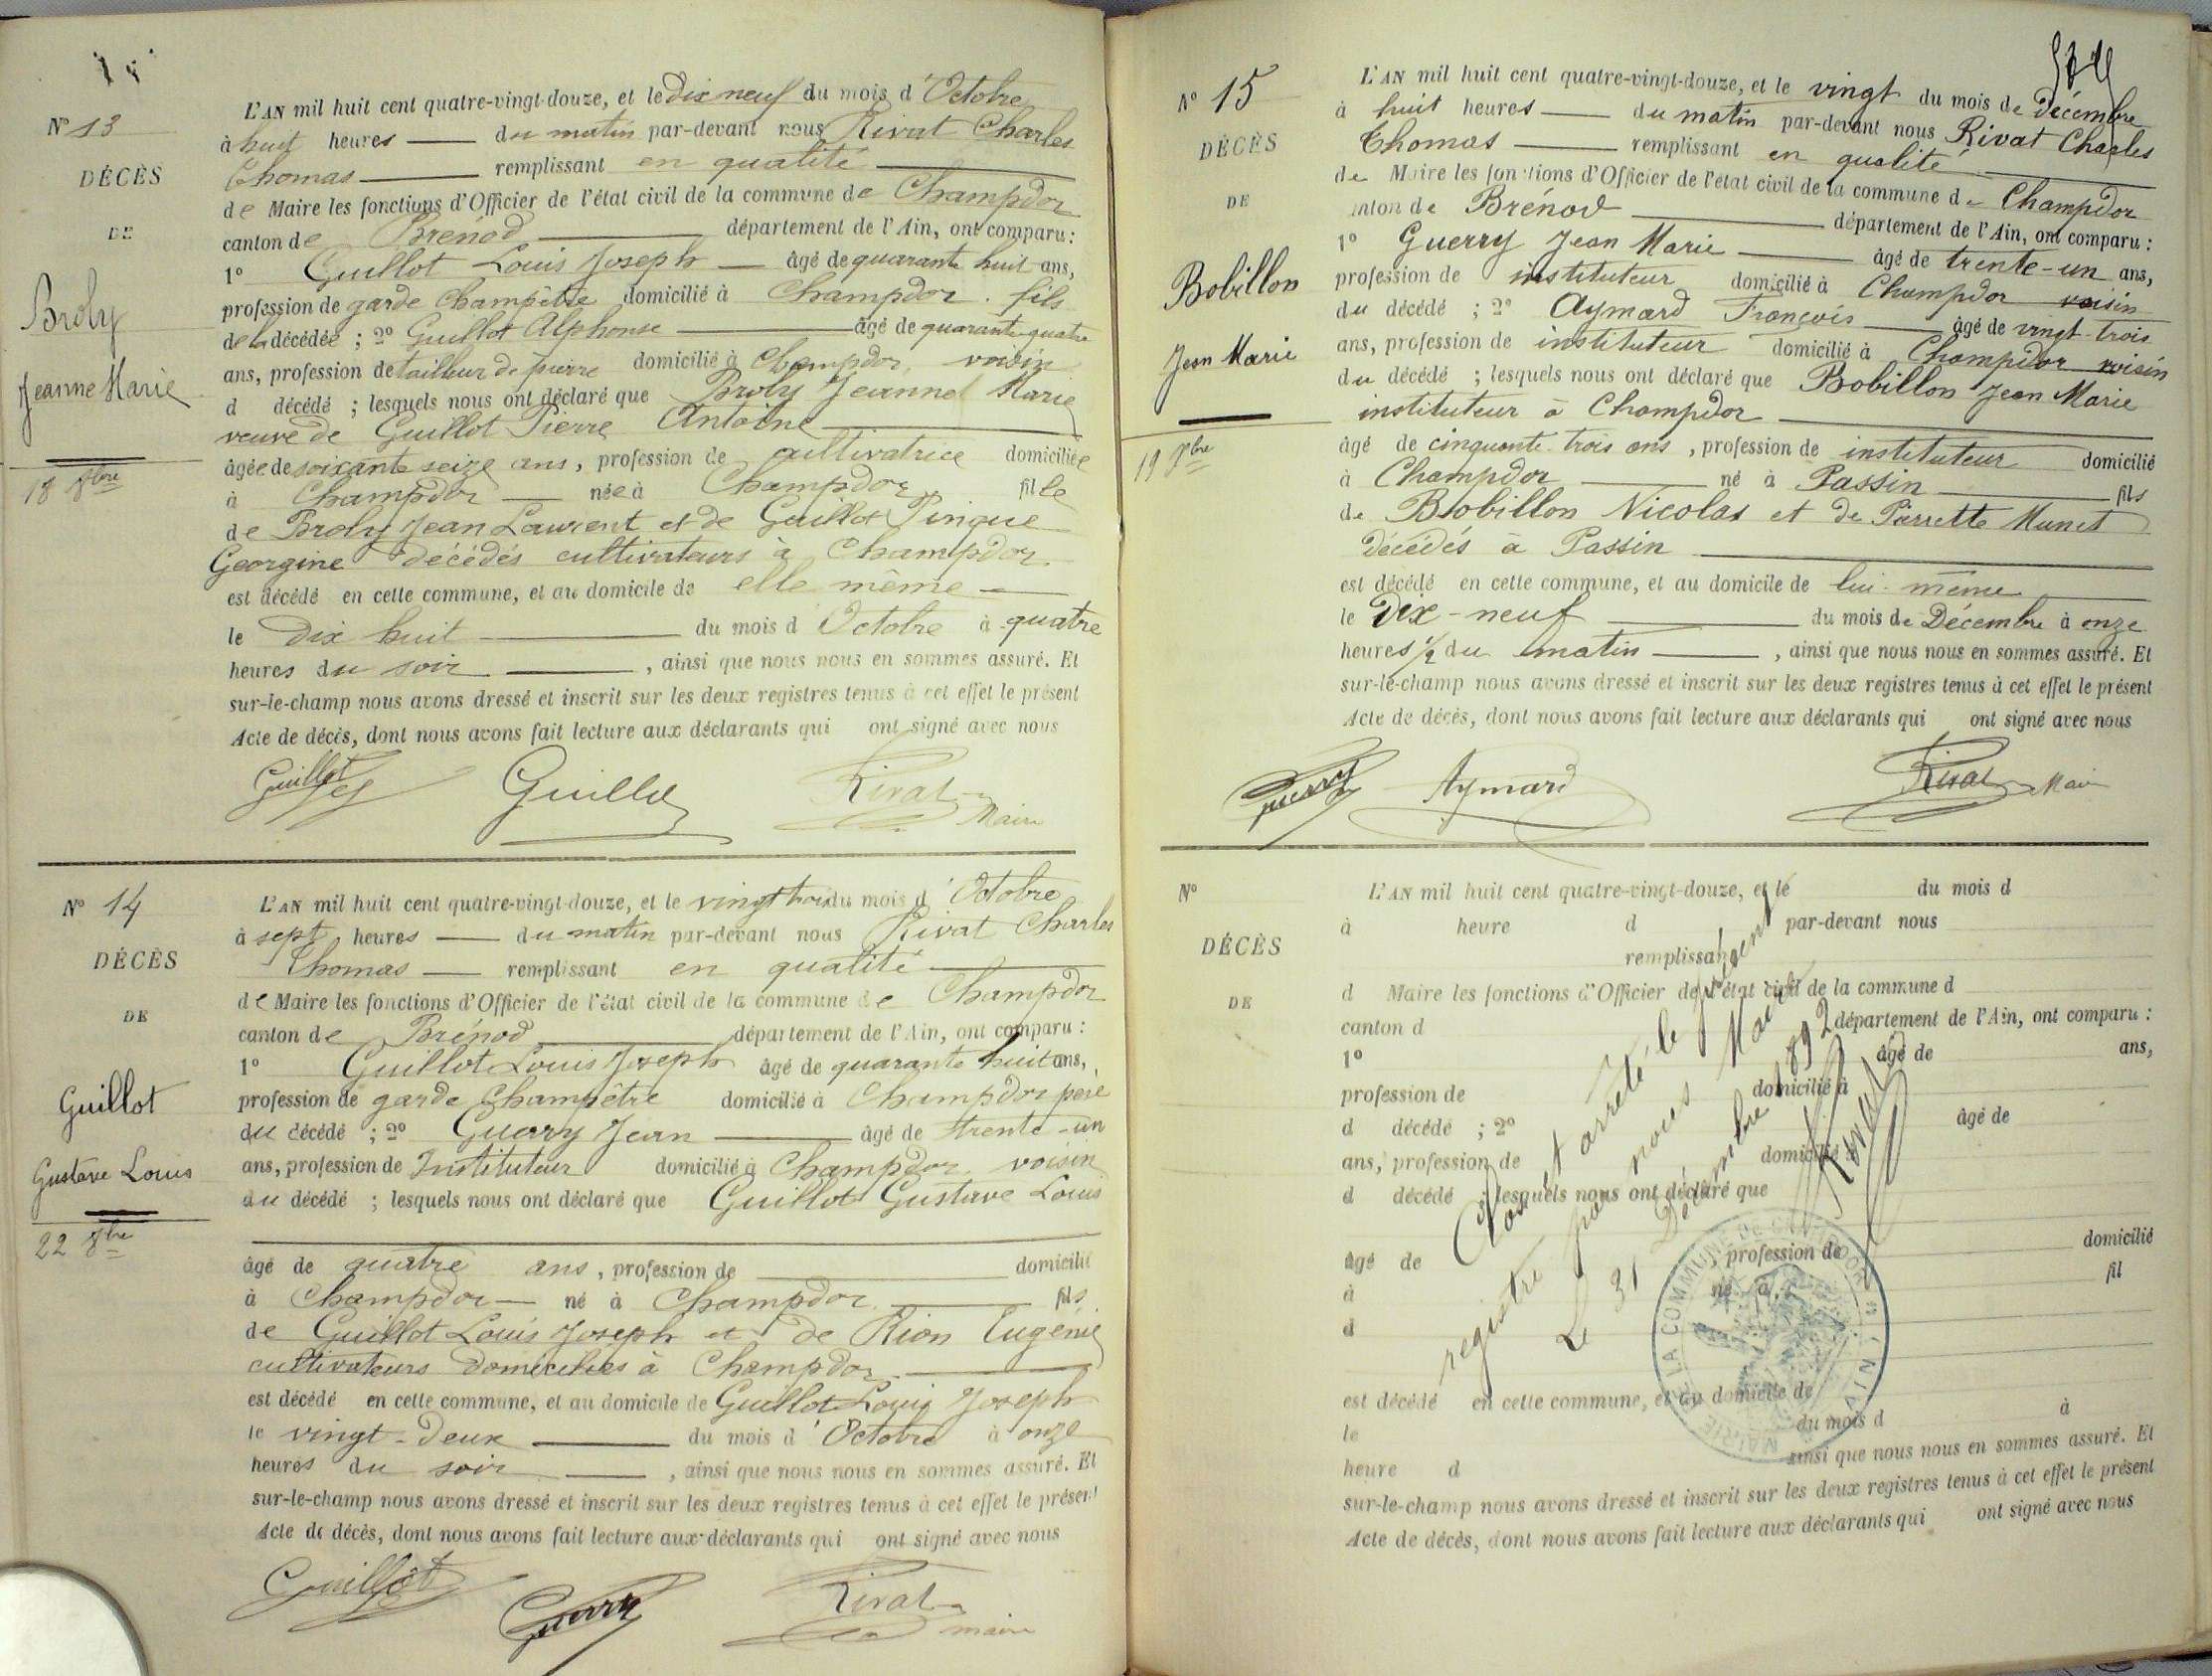 N° 13
DÉCÈS
DE
Broly
Jeanne Marie
18 8bre
L'AN mil huit cent quatre-vingt-douze, et le dix neuf du mois d'Octobre
à huit heures du matin par-devant nous Rivat Charles
Thomas remplissant en qualité
de Maire les fonctions d'Officier de l'état civil de la commune de Champdor
canton de Brénod département de l'Ain, ont comparu :
1° Guillot Louis Joseph âgé de quarante huit ans,
profession de garde Champêtre domicilié à Champdor. fils
de la décédée ; 2° Guillot Alphonse âgé de quarante quatre
ans, profession de tailleur de pierre domicilié à Champdor, voisin
d décédé ; lesquels nous ont déclaré que Broly Jeanne Marie
veuve de Guillot Pierre Antoine
âgée de soixante seize ans, profession de cultivatrice domiciliée
à Champdor née à Champdor fille
de Broly Jean Laurent et de Guillot Pingue
Georgine décédés cultivateurs à Champdor
est décédé en cette commune, et au domicile de elle même
le dix huit du mois d'Octobre à quatre
heures du soir , ainsi que nous nous en sommes assuré. Et
sur-le-champ nous avons dressé et inscrit sur les deux registres tenus à cet effet le présent
Acte de décès, dont nous avons fait lecture aux déclarants qui ont signé avec nous
Guillot Guillot Rivat
Maire
N° 14
DÉCÈS
DE
Guillot
Gustave Louis
22 8bre
L'AN mil huit cent quatre-vingt-douze, et le vingt trois du mois d'Octobre
à sept heures du matin par-devant nous Rivat Charles
Thomas remplissant en qualité
de Maire les fonctions d'Officier de l'état civil de la commune de Champdor
canton de Brénod département de l'Ain, ont comparu :
1° Guillot Louis Joseph âgé de quarante huit ans,
profession de garde Champêtre domicilié à Champdor père
du décédé ; 2° Guerry Jean âgé de trente-un
ans, profession de Instituteur domicilié à Champdor, voisin
du décédé ; lesquels nous ont déclaré que Guillot Gustave Louis
âgé de quatre ans, profession de domicilié
à Champdor né à Champdor fils
de Guillot Louis Joseph et de Rion Eugénie
cultivateurs domiciliés à Champdor
est décédé en cette commune, et au domicile de Guillot Louis Joseph
le vingt-deux du mois d'Octobre à onze
heures du soir , ainsi que nous nous en sommes assuré. Et
sur-le-champ nous avons dressé et inscrit sur les deux registres tenus à cet effet le présent
Acte de décès, dont nous avons fait lecture aux déclarants qui ont signé avec nous
Guillot Guerry Rivat
maire
N° 15
DÉCÈS
DE
Bobillon
Jean Marie
L'AN mil huit cent quatre-vingt-douze, et le vingt du mois de Décembre
à huit heures du matin par-devant nous Rivat Charles
Thomas remplissant en qualité
de Maire les fonctions d'Officier de l'état civil de la commune de Champdor
canton de Brénod département de l'Ain, ont comparu :
1° Guerry Jean Marie âgé de trente-un ans,
profession de instituteur domicilié à Champdor voisin
du décédé ; 2° Aymard François âgé de vingt-trois
ans, profession de instituteur domicilié à Champdor voisin
du décédé ; lesquels nous ont déclaré que Bobillon Jean Marie
instituteur à Champdor
âgé de cinquante-trois ans, profession de instituteur domicilié
à Champdor né à Passin fils
de Bobillon Nicolas et de Pierrette Munet
décédés à Passin
est décédé en cette commune, et au domicile de lui-même
le Dix-neuf du mois de Décembre à onze
heures 1/2 du matin , ainsi que nous nous en sommes assuré. Et
sur-le-champ nous avons dressé et inscrit sur les deux registres tenus à cet effet le présent
Acte de décès, dont nous avons fait lecture aux déclarants qui ont signé avec nous
Guerry Aymard Rivat Maire
N°
DÉCÈS
DE
L'AN mil huit cent quatre-vingt-douze, et le du mois d
à heure d par-devant nous
remplissant
d Maire les fonctions d'Officier de l'état civil de la commune d
canton d département de l'Ain, ont comparu :
1° âgé de ans,
profession de domicilié à
d décédé ; 2° âgé de
ans, profession de domicilié à
d décédé ; lesquels nous ont déclaré que
âgé de , profession de domicilié
à né à fil
d
est décédé en cette commune, et au domicile de
le du mois d à
heure d ainsi que nous nous en sommes assuré. Et
sur-le-champ nous avons dressé et inscrit sur les deux registres tenus à cet effet le présent
Acte de décès, dont nous avons fait lecture aux déclarants qui ont signé avec nous
Clos et arrêté le présent
registre par nous Maire
Le 31 Décembre 1892
Rivat
MAIRIE DE LA COMMUNE DE CHAMPDOR (AIN)